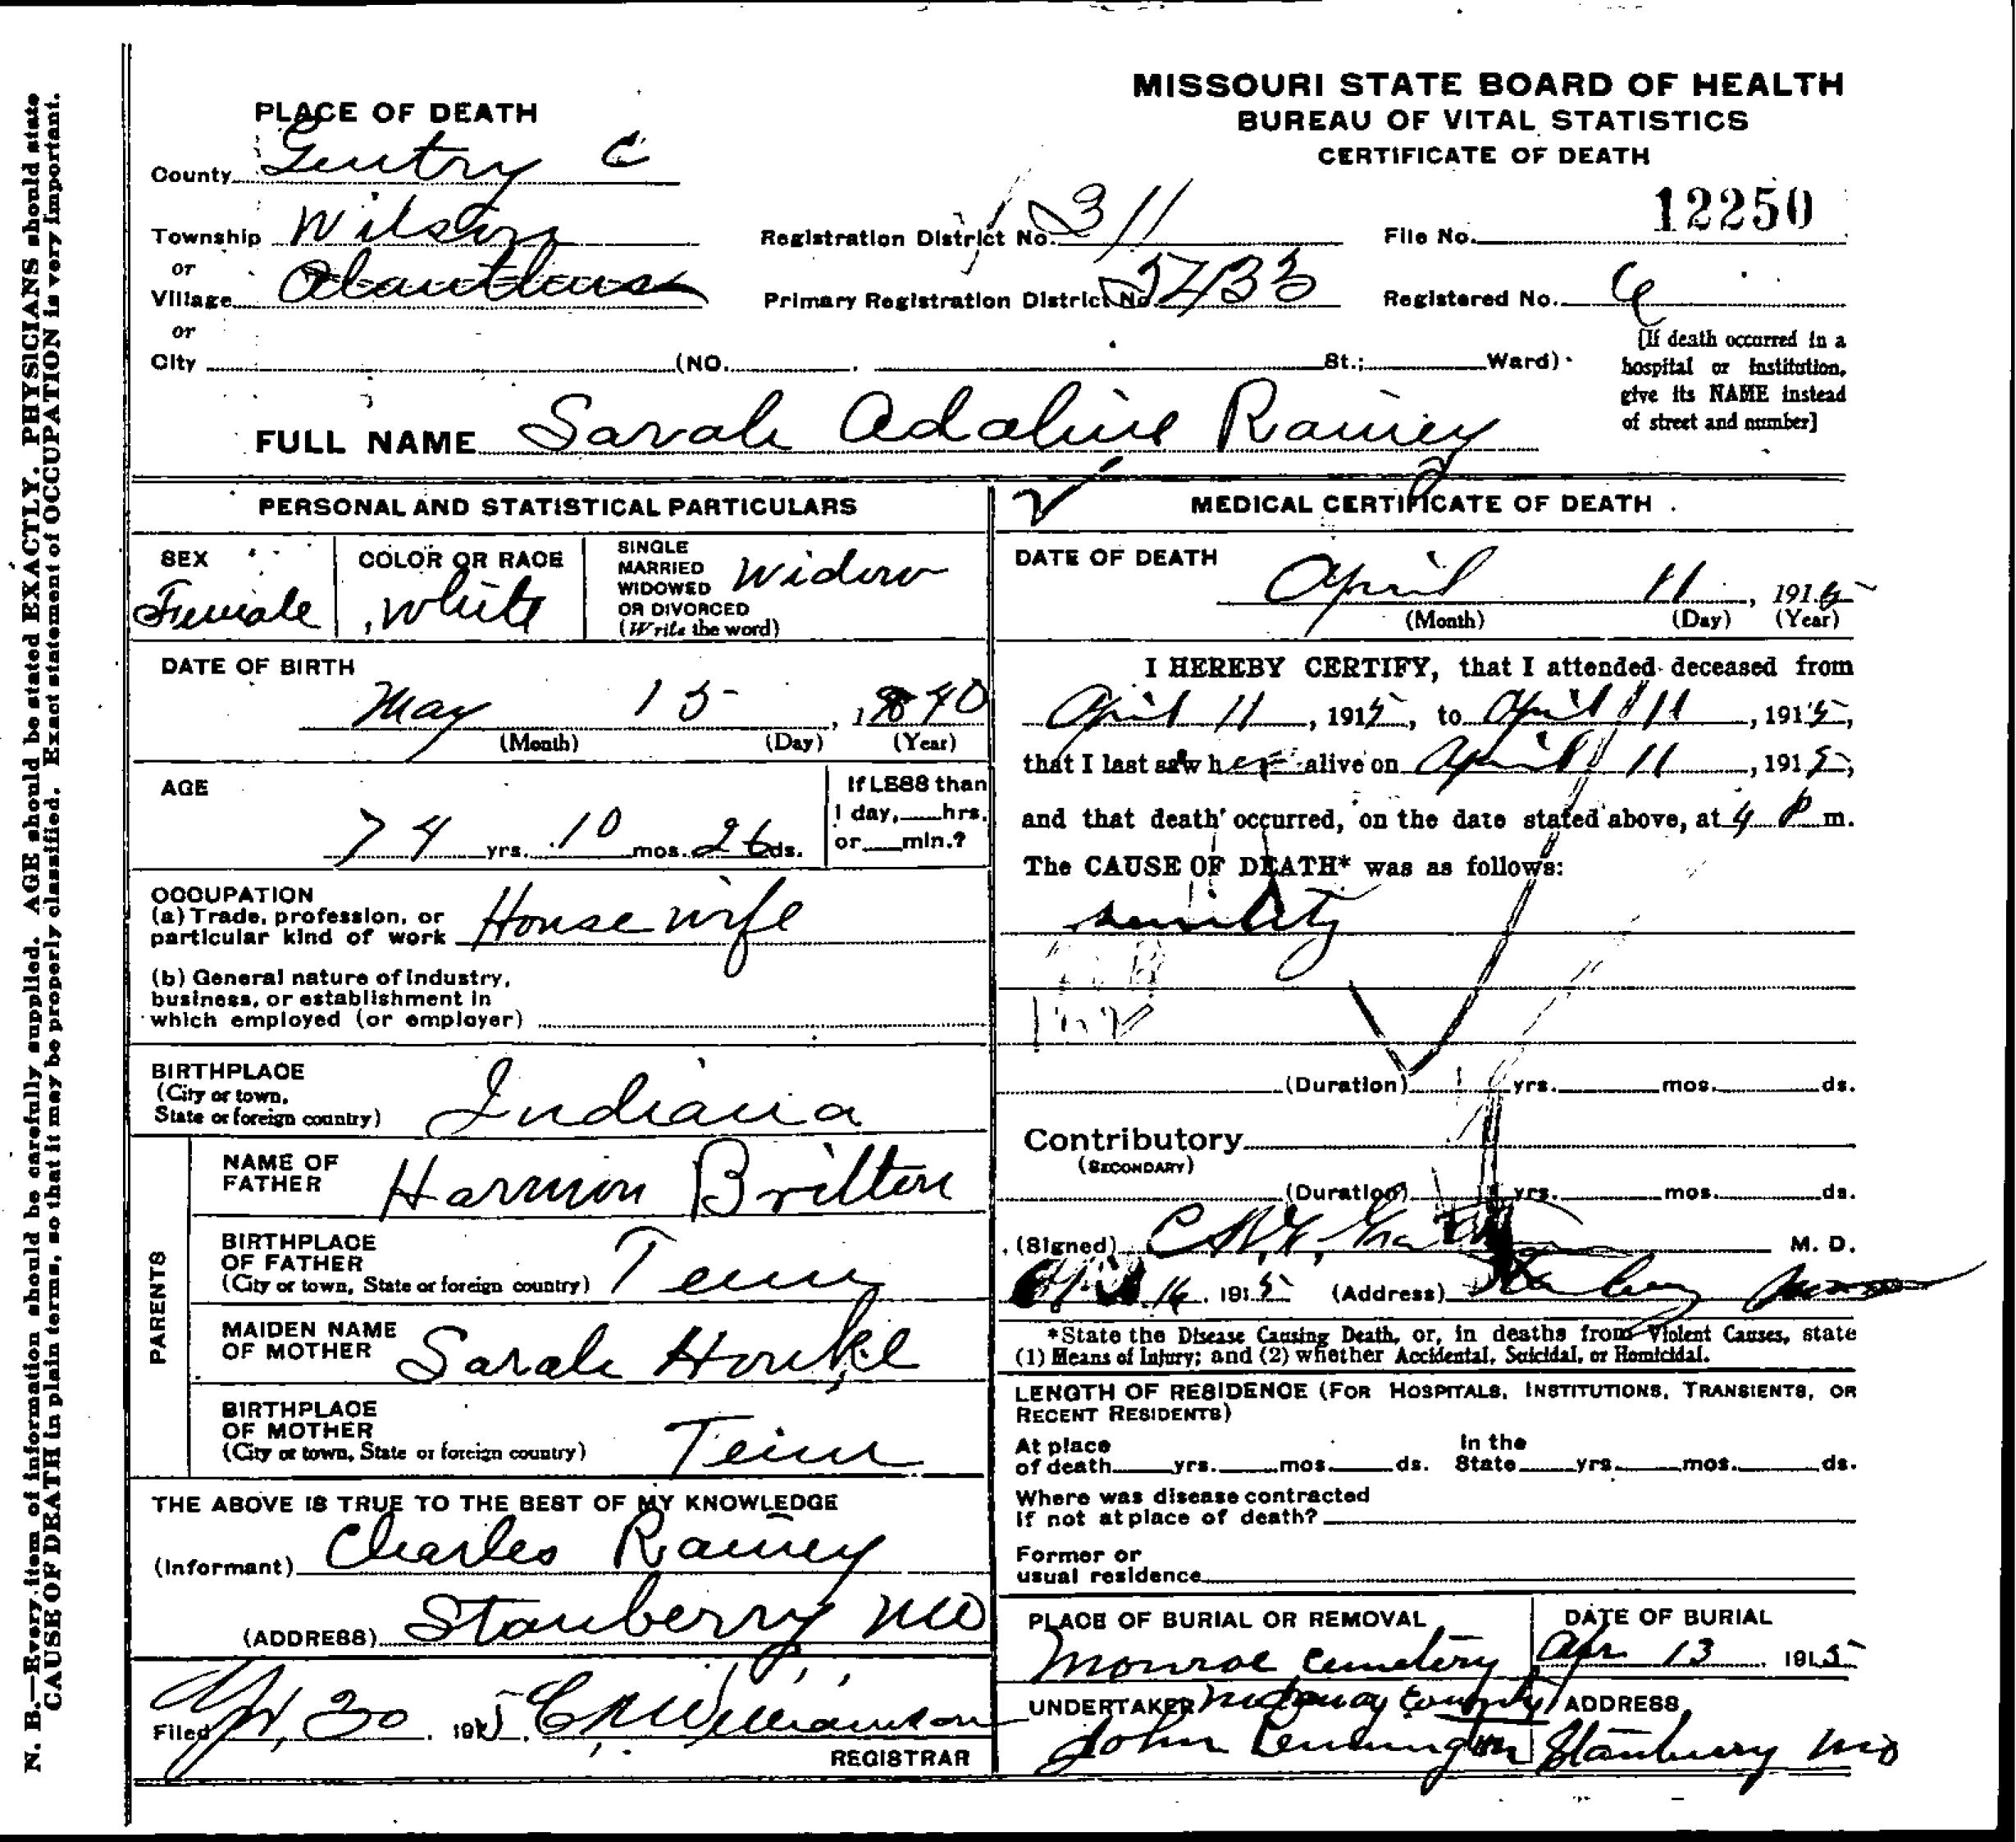 MISSOURI STATE BOARD OF HEALTH
BUREAU OF VITAL STATISTICS
CERTIFICATE OF DEATH
PLACE OF DEATH
County Gentry C
Township Wilson
or
Village
or
City (NO. St.; Ward)
Registration District No. 311
Primary Registration District No.
File No. 12250
Registered No. 6
[If death occurred in a
hospital or institution,
give its NAME instead
of street and number]
FULL NAME Sarah Adaline Rainey
PERSONAL AND STATISTICAL PARTICULARS
SEX
Female
COLOR OR RACE
White
SINGLE
MARRIED
WIDOWED
OR DIVORCED
(Write the word)
Widow
DATE OF BIRTH
May 15, 1840
(Month) (Day) (Year)
AGE
74 yrs. 10 mos. 26 ds.
If LESS than
1 day, hrs.
or min.?
OCCUPATION
(a) Trade, profession, or
particular kind of work House wife
(b) General nature of industry,
business, or establishment in
which employed (or employer)
BIRTHPLACE
(City or town,
State or foreign country) Indiana
PARENTS
NAME OF
FATHER Harmon Britten
BIRTHPLACE
OF FATHER
(City or town, State or foreign country) Tenn
MAIDEN NAME
OF MOTHER Sarah
BIRTHPLACE
OF MOTHER
(City or town, State or foreign country) Tenn
THE ABOVE IS TRUE TO THE BEST OF MY KNOWLEDGE
(Informant) Charles Rainey
(ADDRESS) Stanberry Mo
Filed Apr 20, 1915 Williamson
REGISTRAR
MEDICAL CERTIFICATE OF DEATH
DATE OF DEATH
April 11, 1915
(Month) (Day) (Year)
I HEREBY CERTIFY, that I attended deceased from
April 11, 1915, to April 11, 1915,
that I last saw her alive on April 11, 1915,
and that death occurred, on the date stated above, at 4 P m.
The CAUSE OF DEATH* was as follows:
senility
(Duration) yrs. mos. ds.
Contributory
(SECONDARY)
(Duration) yrs. mos. ds.
(Signed) M. D.
16, 1915 (Address)
*State the Disease Causing Death, or, in deaths from Violent Causes, state
(1) Means of Injury; and (2) whether Accidental, Suicidal, or Homicidal.
LENGTH OF RESIDENCE (FOR HOSPITALS, INSTITUTIONS, TRANSIENTS, OR
RECENT RESIDENTS)
At place
of death yrs. mos. ds.
In the
State yrs. mos. ds.
Where was disease contracted
if not at place of death?
Former or
usual residence
PLACE OF BURIAL OR REMOVAL
Monroe Cemetery
Nodaway County
DATE OF BURIAL
Apr 13 1915
UNDERTAKER
John Pennington
ADDRESS
Stanberry Mo
N. B.—Every item of information should be carefully supplied. AGE should be stated EXACTLY. PHYSICIANS should state
CAUSE OF DEATH in plain terms, so that it may be properly classified. Exact statement of OCCUPATION is very important.